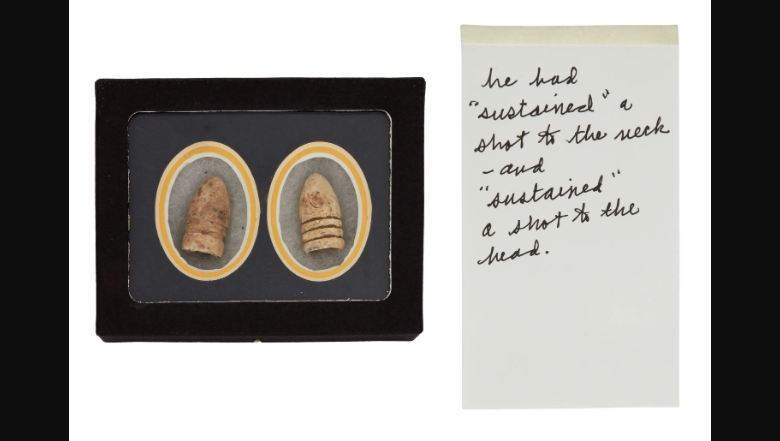 he had
"sustained" a
shot to the neck
- and
"sustained"
a shot to the
head.